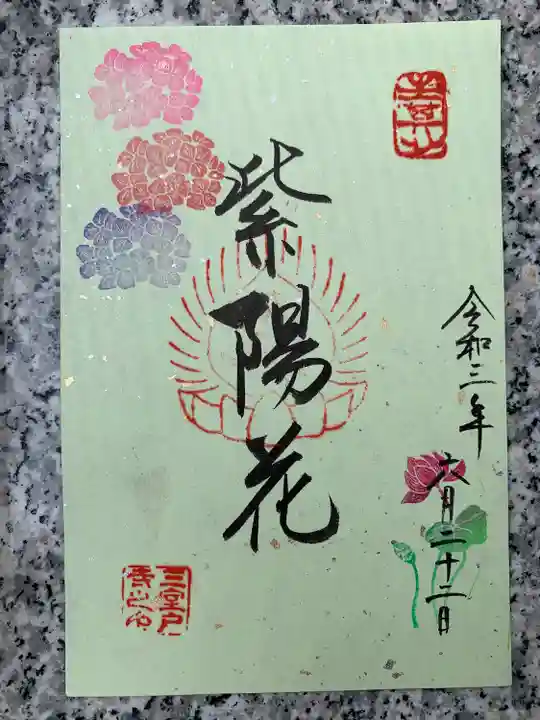 令和二年
六月二十二日
紫陽花
三室戸
寺之印